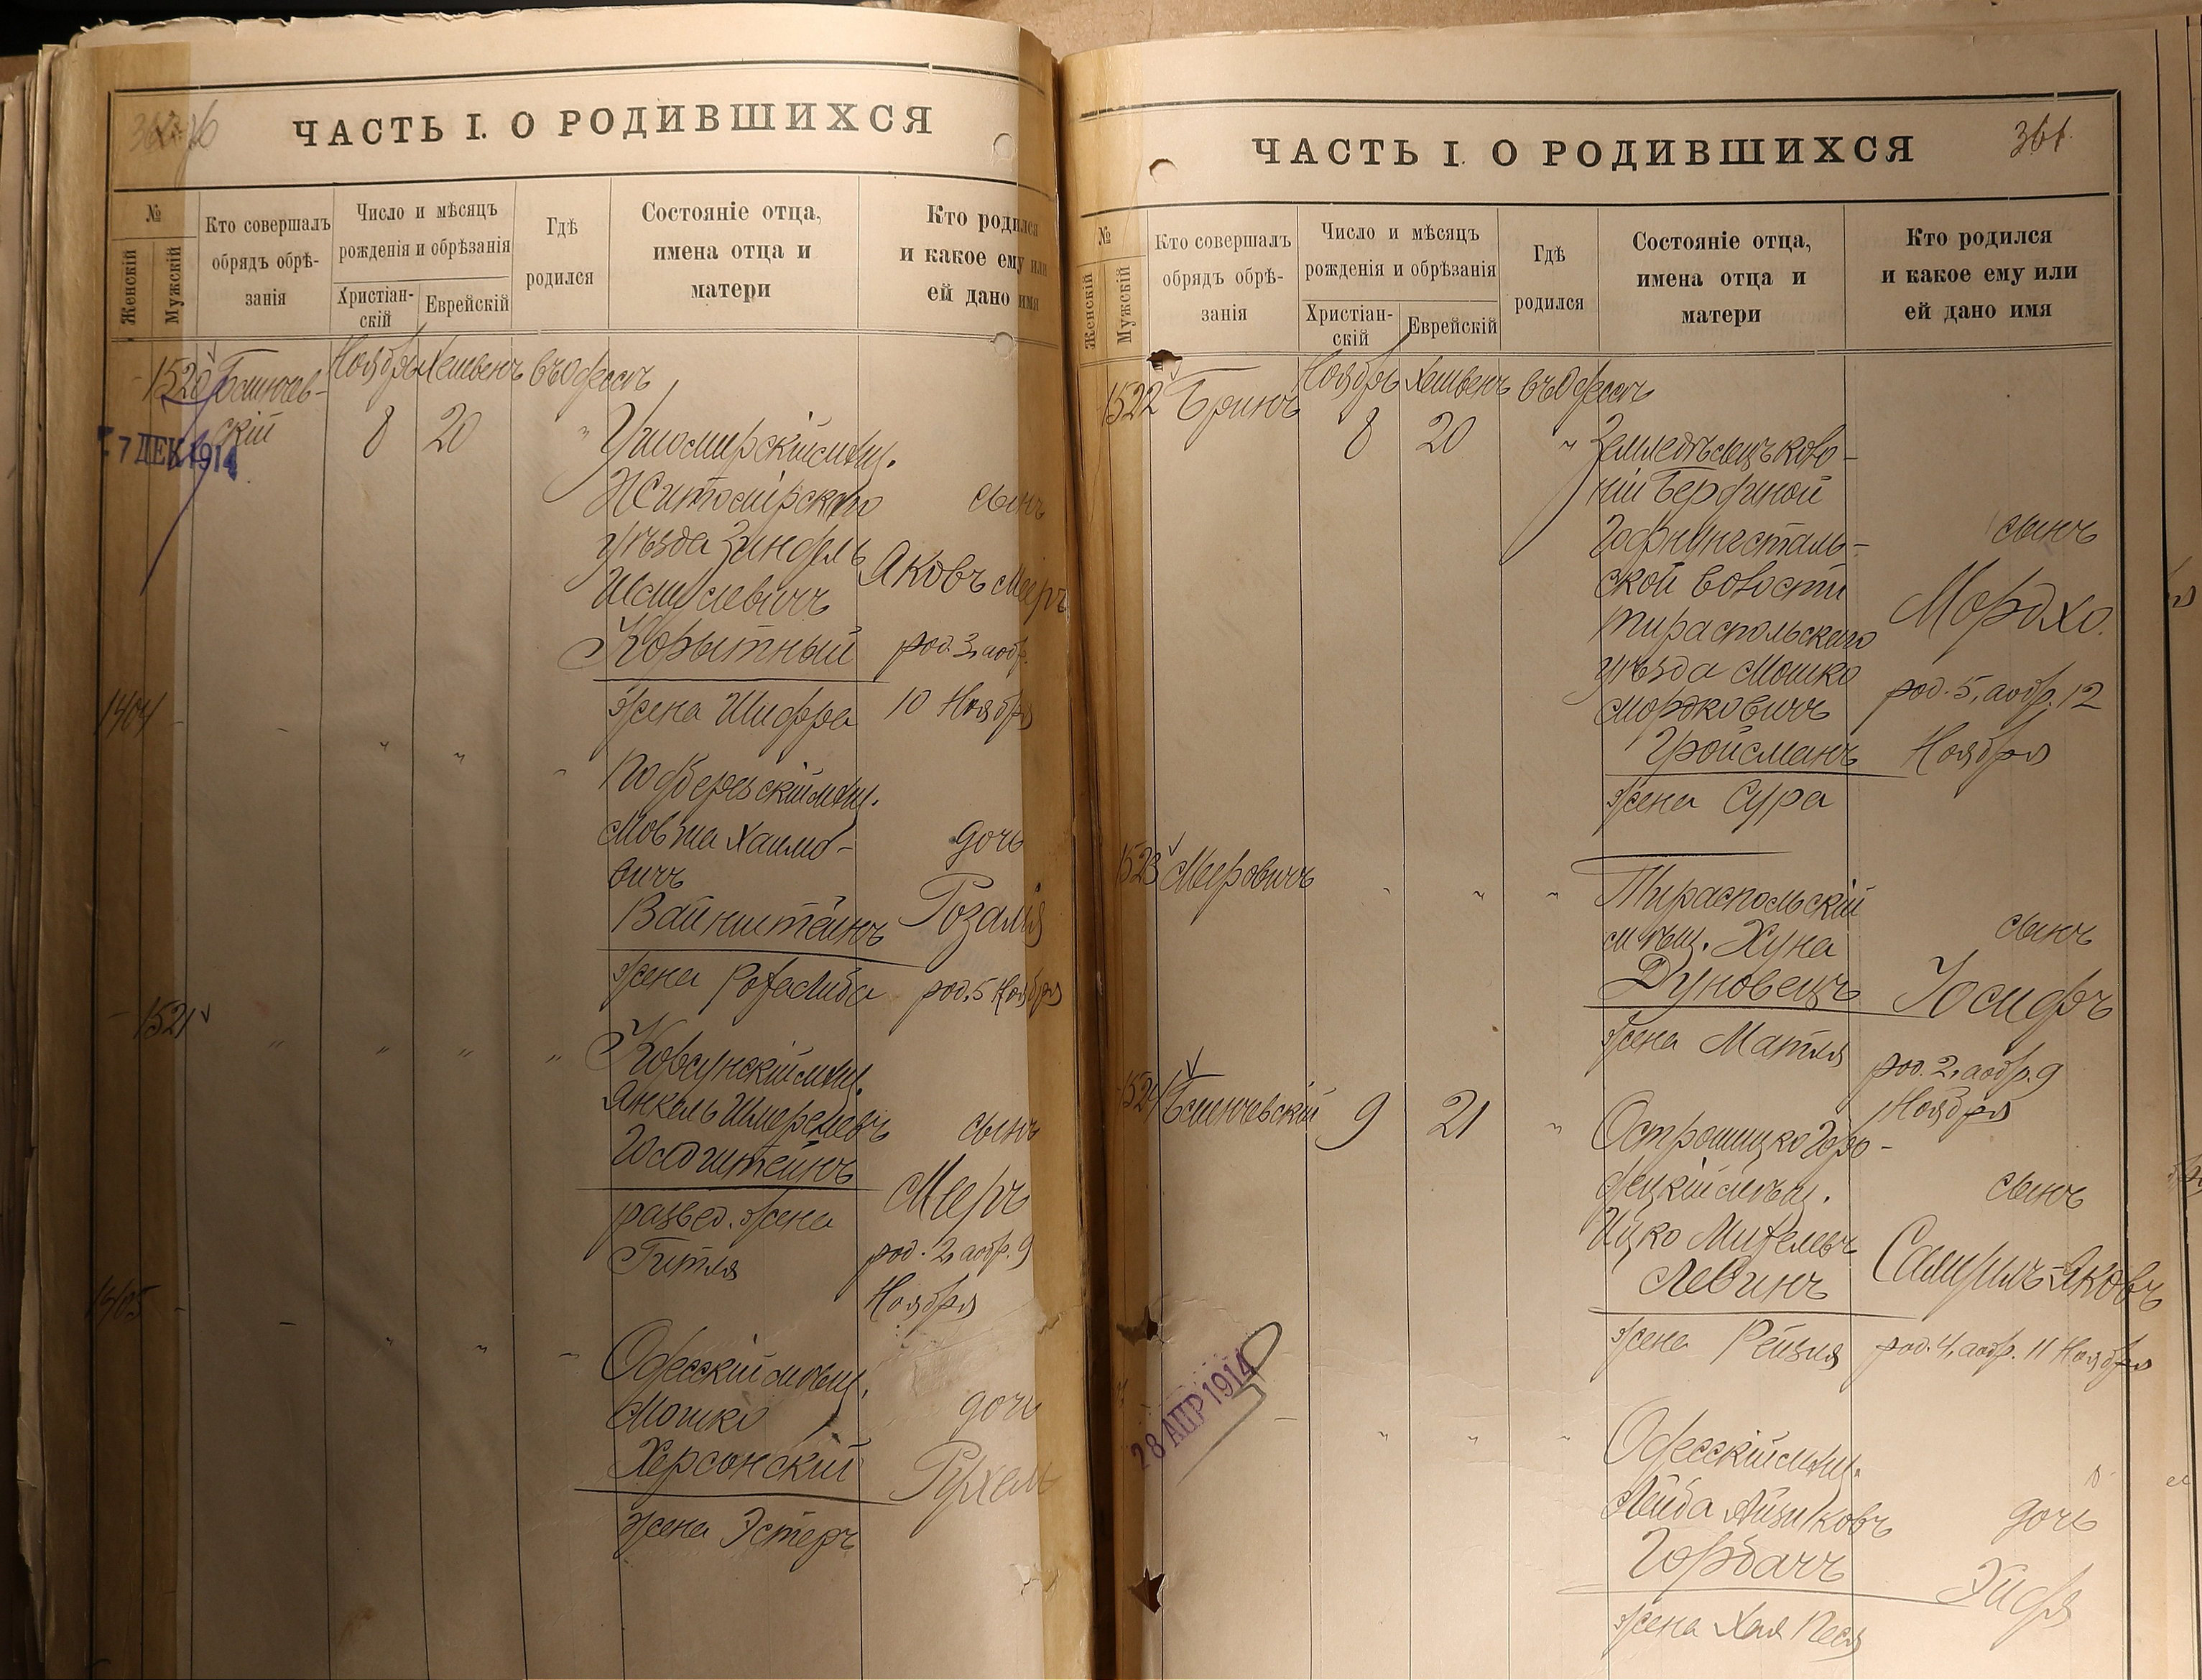 ЧАСТЬ I. О РОДИВШИХСЯ
№
Женскій
Мужскій
Кто совершалъ
обрядъ обрѣ-
занія
Число и мѣсяцъ
рожденія и обрѣзанія
Христіан-
скій
Еврейскій
Гдѣ
родился
Состояніе отца,
имена отца и
матери
Кто родился
и какое ему или
ей дано имя
1520
скій
7 ДЕК 1914
Ноябрь Хешвенъ въ Одессѣ
8 20 "
Ушомирскій мѣщ.
Житомірскаго
уѣзда Зиндель
Шмулевичъ
Корытный
жена Шифра
сынъ
Яковъ Мееръ
род. 3, аобр.
10 Ноября
1404 - - " " "
мѣщ.
Мовша Хаимо-
вичъ
Вайнштейнъ
жена
дочь
Розалія
род. 5 Ноября
1521 " " " "
Корсунскій мѣщ.
Янкель
Гольдштейнъ
развед. жена
Гитля
сынъ
Мееръ
род. 2, аобр. 9
Ноября
1405 - - " " "
Одесскій мѣщ.
Мошко
Херсонскій
жена Эстеръ
дочь
Рухель
ЧАСТЬ I. О РОДИВШИХСЯ
361.
№
Женскій
Мужскій
Кто совершалъ
обрядъ обрѣ-
занія
Число и мѣсяцъ
рожденія и обрѣзанія
Христіан-
скій
Еврейскій
Гдѣ
родился
Состояніе отца,
имена отца и
матери
Кто родился
и какое ему или
ей дано имя
1522 Бринъ
Ноябрь Хешвенъ въ Одессѣ
8 20 "
Земледѣлецъ коло-
ніи
Гофнунгсталь-
ской волости
Тираспольскаго
уѣзда Мошко
Мордковичъ
Гройсманъ
жена Сура
сынъ
Мордхо.
род. 5, аобр. 12
Ноября
1523 Мееровичъ " " "
Тираспольскій
мѣщ. Хуна
Дуновецъ
жена Матля
сынъ
Іосифъ
род. 2, аобр. 9
Ноября
1524 9 21 "
Острошицко Горо-
децкій мѣщ.
Ицко
Левинъ
жена Рейзя
сынъ
Самуилъ-Яковъ
род. 4, аобр. 11 Ноября
28 АПР 1914
- " " "
Одесскій мѣщ.
Лейба Айзиковъ
Горбачъ
жена Хая Песя
дочь
Эйдя